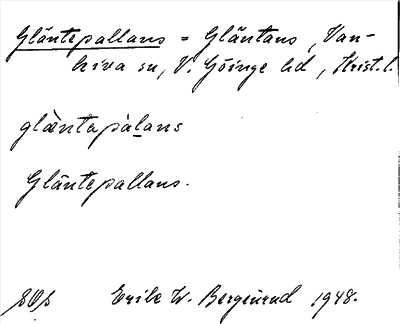 Gläntepallans = Gläntans, Van-
kiva sn, V. Göinge hd, Krist. l.
glæ̀nta pàlans
Gläntepallans.
SOs Erik W. Bergstrand 1948.